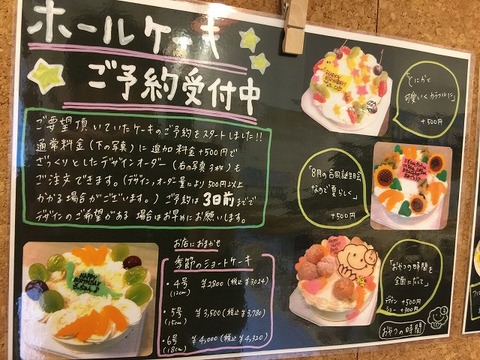 ホールケーキ
ご予約受付中
ご要望頂いていたケーキのご予約をスタートしました!!
通常料金(下の写真)に追加料金+500円で
ざっくりとしたデザインオーダー(右の写真3枚)も
ご注文できます。(デザイン、オーダー量により500円以上
かかる場合がございます。)ご予約は3日前まで
デザインのご希望がある場合はお早めにお願いします。
お店におまかせ
季節のショートケーキ
・4号 ¥2800(税込¥3024)
(12cm)
・5号 ¥3,500(税込¥3,780)
(15cm)
・6号 ¥4,000(税込¥4,320)
(18cm)
"とにかく
可愛いくカラフルに"
+500円
"8月の合同誕生会
なので夏らしく"
+500円
"おやつの時間を
全面にだして"
+500円
おやつの時間